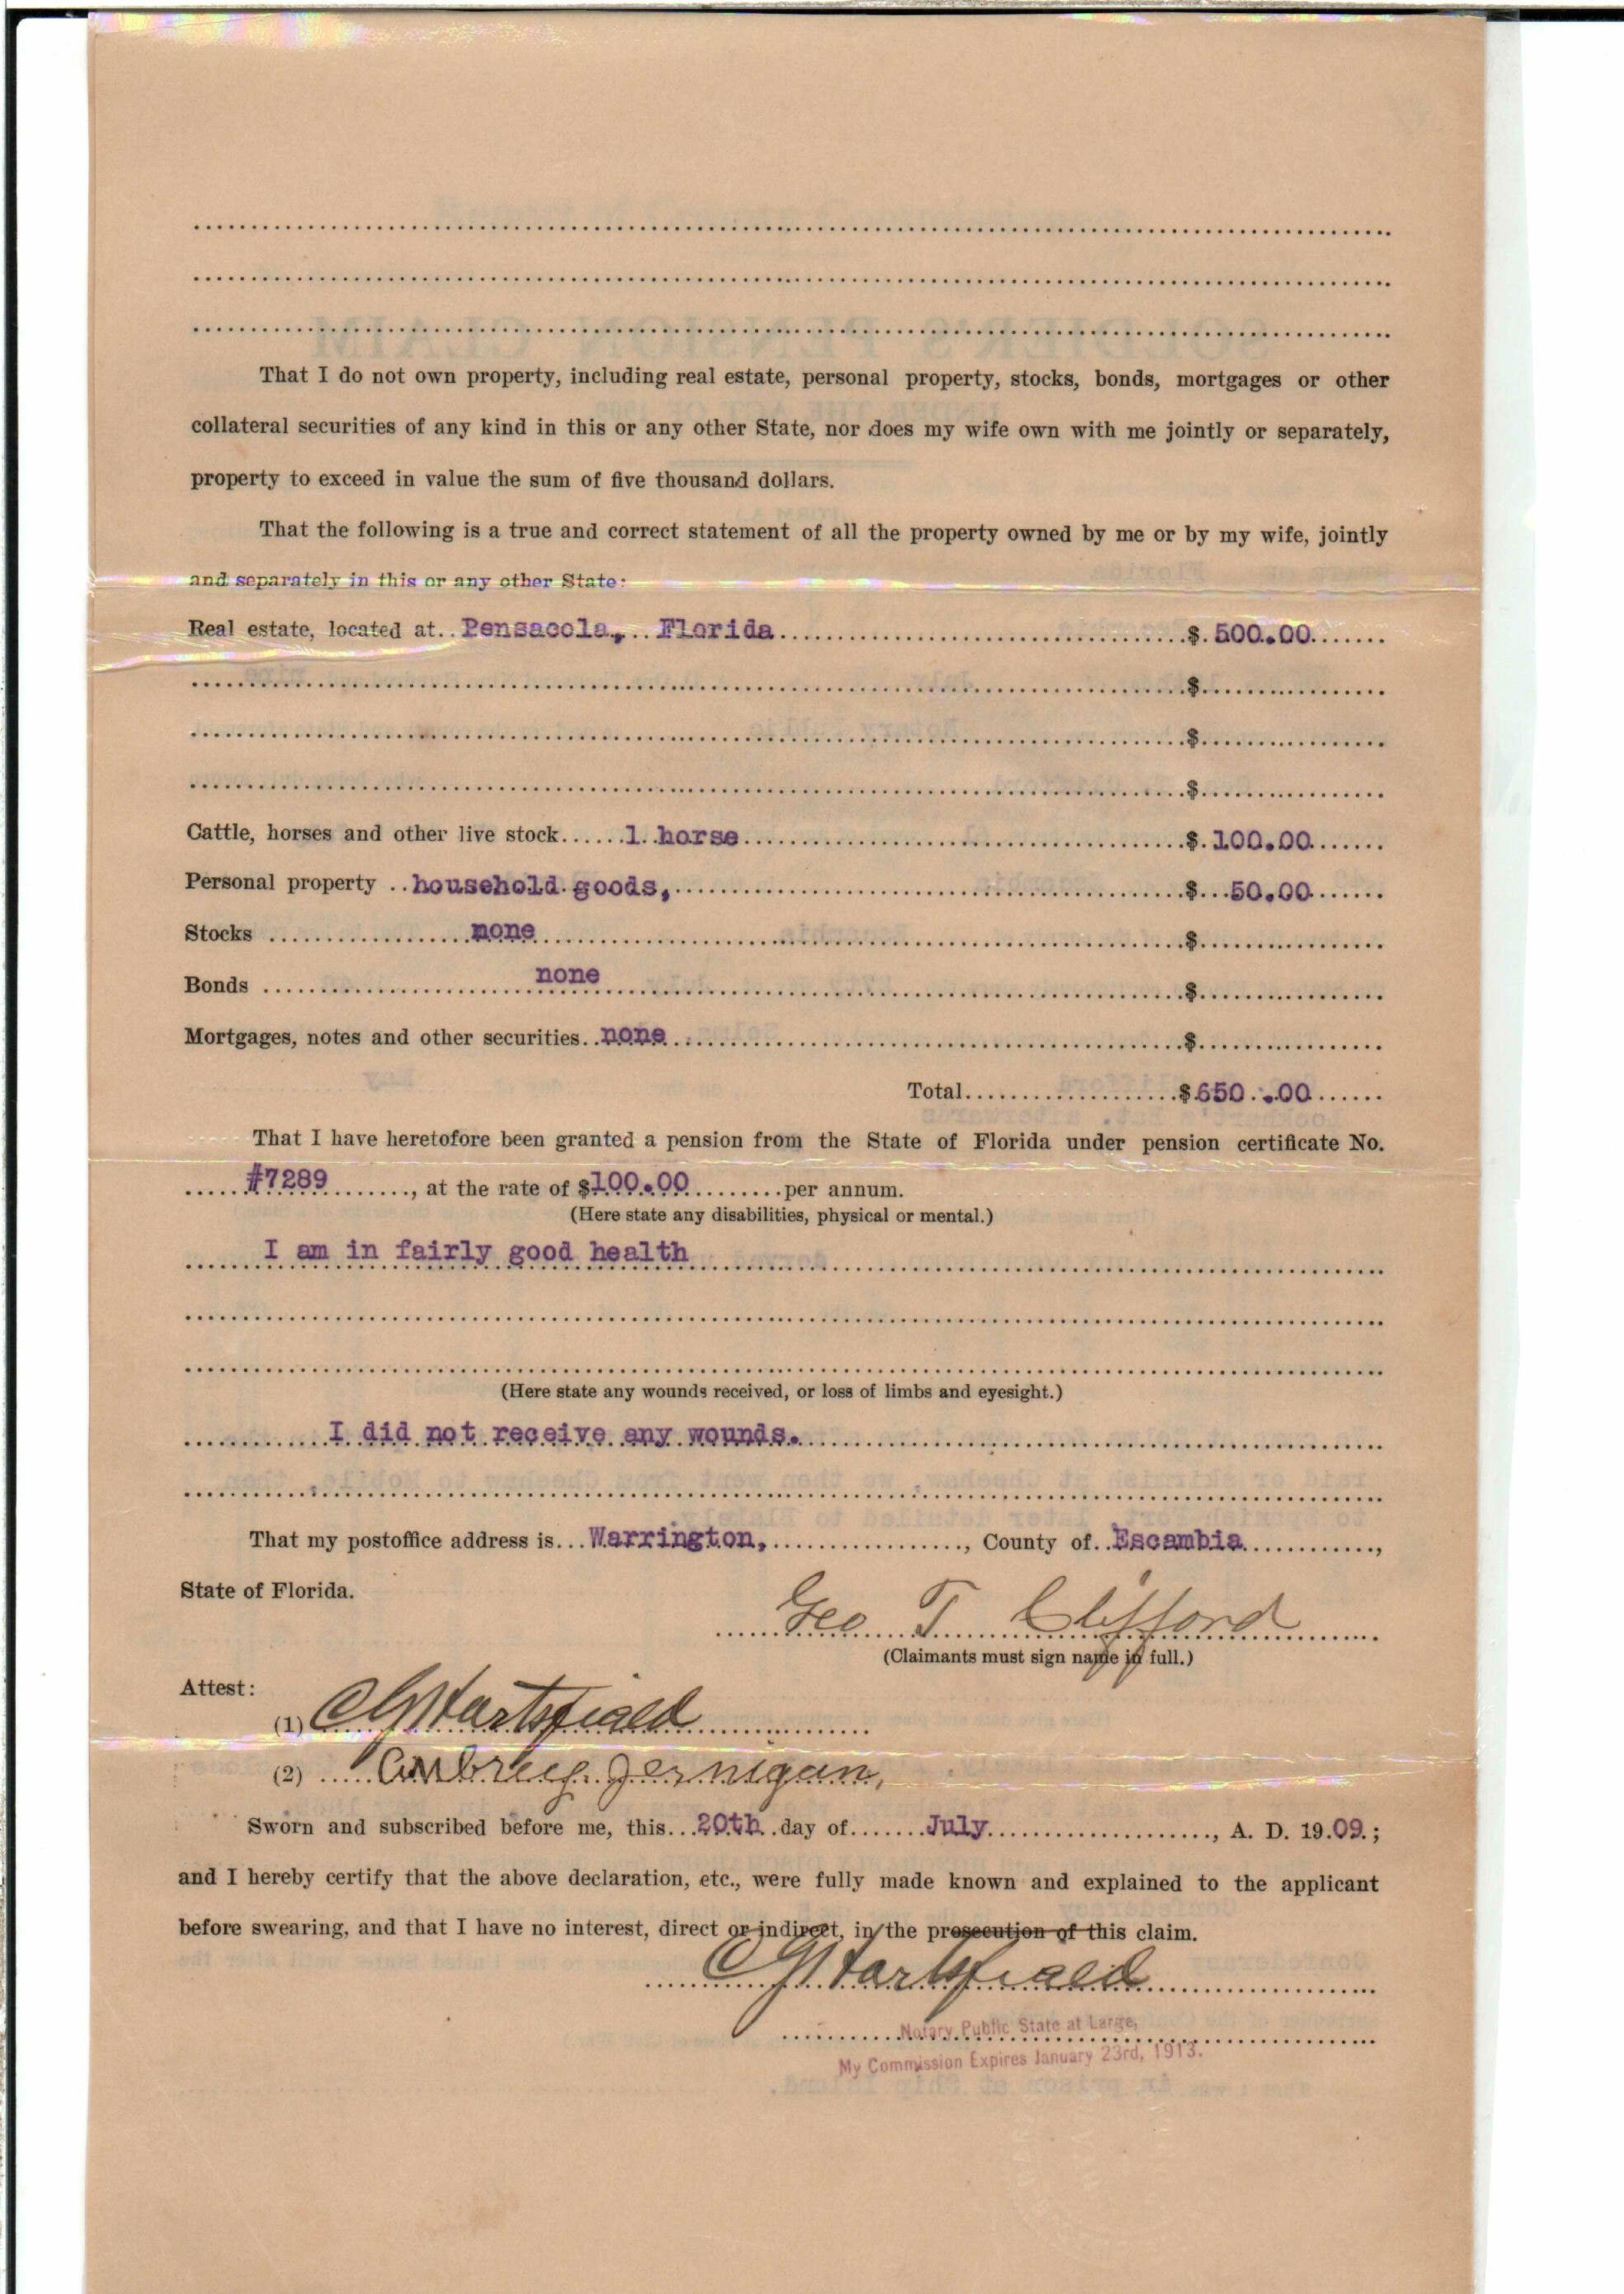 That I do not own property, including real estate, personal property, stocks, bonds, mortgages or other
collateral securities of any kind in this or any other State, nor does my wife own with me jointly or separately,
property to exceed in value the sum of five thousand dollars.
That the following is a true and correct statement of all the property owned by me or by my wife, jointly
and separately in this or any other State:
Real estate, located at Pensacola, Florida $ 500.00
$
$
$
Cattle, horses and other live stock 1 horse $ 100.00
Personal property household goods, $ 50.00
Stocks none $
Bonds none $
Mortgages, notes and other securities none $
Total $ 650.00
That I have heretofore been granted a pension from the State of Florida under pension certificate No.
#7289, at the rate of $100.00 per annum.
(Here state any disabilities, physical or mental.)
I am in fairly good health
(Here state any wounds received, or loss of limbs and eyesight.)
I did not receive any wounds.
That my postoffice address is Warrington, , County of Escambia ,
State of Florida.
Geo T Clifford
(Claimants must sign name in full.)
Attest:
(1) C G Hartsfield
(2) Aubrey Jernigan,
Sworn and subscribed before me, this 20th day of July , A. D. 1909.;
and I hereby certify that the above declaration, etc., were fully made known and explained to the applicant
before swearing, and that I have no interest, direct or indirect, in the prosecution of this claim.
C G Hartsfield
Notary Public State at Large,
My Commission Expires January 23rd, 1913.